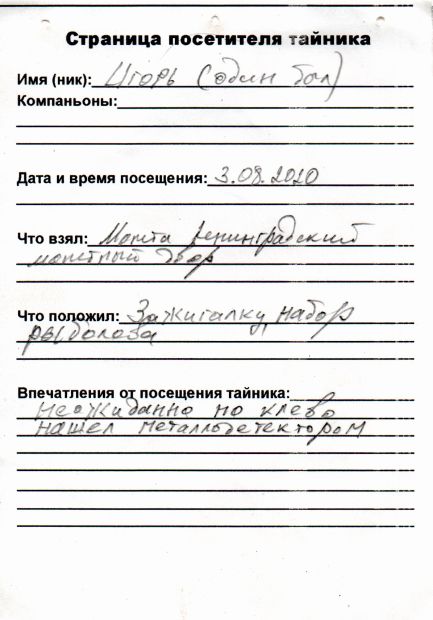 Страница посетителя тайника
Имя (ник): Игорь (один был)
Компаньоны:
Дата и время посещения: 3.08.2020
Что взял: Монета Ленинградский
монетный двор
Что положил: Зажигалку, набор
рыболова
Впечатления от посещения тайника:
Неожиданно но клево
нашел металлодетектором